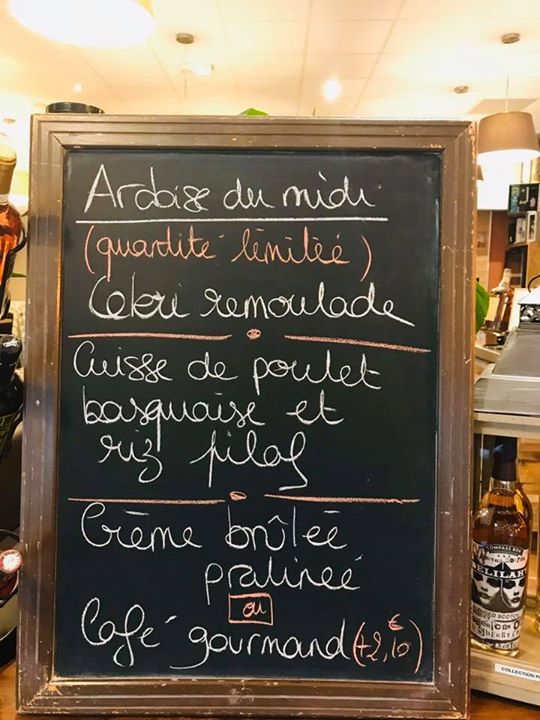 Ardoise du midi
(quantité limitée)
Céleri remoulade
Cuisse de poulet
basquaise et
riz pilaf
Crème brûlée
pralinée
ou
Café gourmand (+2,10€)
COMPASS BOX
DELILAH
COLLECTION